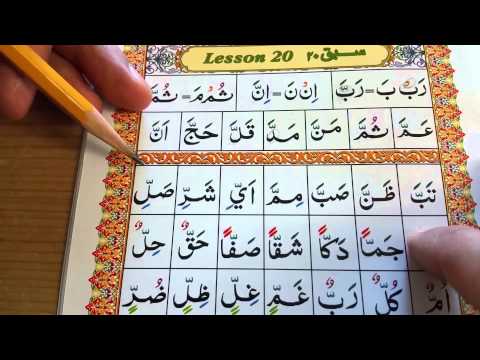 Lesson 20 سبق ۲۰
رَبْ بَ = رَبَّ اِنْ نَ = اِنَّ ثُمْ مَ = ثُمَّ
عَمَّ ثُمَّ مَنَّ مَدَّ قَلَّ حَجَّ اَنَّ
تَبَّ ظَنَّ صَبَّ مِمَّ اَيِّ شَرِّ صَلِّ
جَمًّا دَكًّا شَقًّا صَفًّا حَقٌّ حِلٌّ
اُمٌّ كُلٌّ رَبٌّ غَمٍّ غِلٍّ ظِلٍّ ضُرٍّ